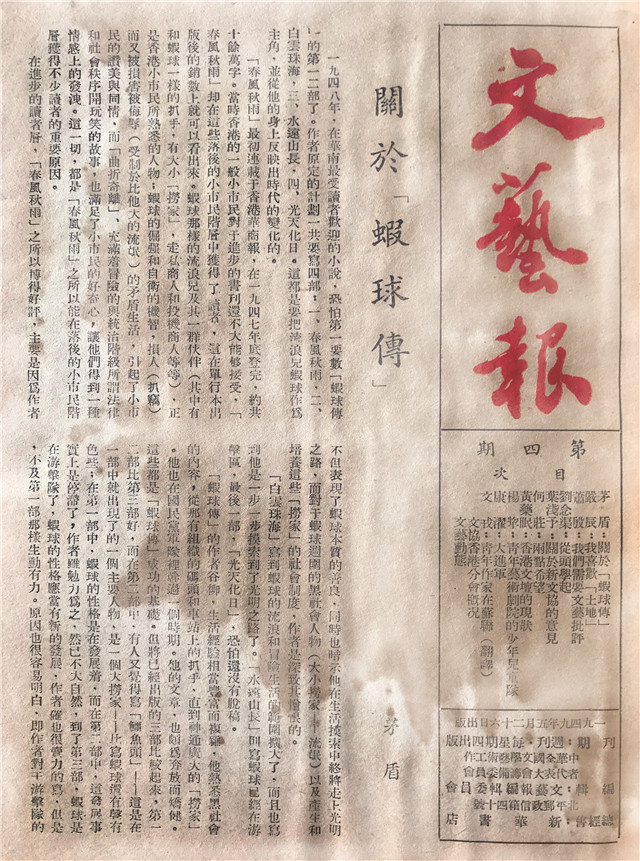 文藝報
第四期
目次
茅盾：關於「蝦球傳」
嚴辰：我喜歡「土地」
蕭殷：我們需要文藝批評
劉念渠：從頭學起
葉淺予：關於新文協的意見
何莊：兩點希望
黃藥眠：香港文壇的現狀
楊黎：青年藝術劇院的少年兒童隊
康濯：大進軍
文戎：青年作家在蘇聯（翻譯）
文協香港分會概況
文藝動態
一九四九年五月二十六日出版
刊期：週刊・每星期四出版
編輯：中華全國文學藝術工作者代表大會籌備委員會文藝報編輯委員會
北平郵政信箱四十號
總經售：新華書店
關於「蝦球傳」
茅盾
一九四八年，在華南最受讀者歡迎的小說，恐怕第一要數「蝦球傳
」的第一二部了。作者原定的計劃一共要寫四部：一、春風秋雨，二、
白雲珠海，三、水遠山長，四、光天化日。這都是要把流浪兒蝦球作為
主角，並從他的身上反映出時代的變化的。
「春風秋雨」最初連載于香港華商報，在一九四七年底登完，約共
十餘萬字。當時香港的一般小市民對于進步的書刊還不大能够接受，「
春風秋雨」却在這些落後的小市民階層中獲得了讀者，這在單行本出
版後的銷數上就可以看出來。蝦球那樣的流浪兒及其一群伙伴（其中有
和蝦球一樣的扒手，有大小「撈家」，走私商人和投機商人等等），正
是香港小市民所熟悉的人物；蝦球的倔強和自衛的機智，損人（扒竊）
而又被損害被侮辱（受制於比他大的流氓）的矛盾生活，引起了小市
民的讚美與同情，而「曲折奇離」，充滿着冒險的與統治階級所謂法律
和社會秩序開玩笑的故事，也滿足了小市民的好奇心，讓他們得到一種
情感上的發洩。這一切，都是「春風秋雨」之所以能在落後的小市民階
層獲得不少讀者的重要原因。
在進步的讀者層，「春風秋雨」之所以博得好評，主要是因為作者
不但表現了蝦球本質的善良，同時也暗示他在生活摸索中終將走上光明
之路，而對于蝦球週圍的黑社會人物（大小撈家，流氓）以及產生和
培養這些「撈家」的社會制度，作者是深致其憎恨的。
「白雲珠海」寫到蝦球的流浪和冒險生活的範圍擴大了，而且也寫
到他是一步一步摸索到了光明之路了。「水遠山長」則寫蝦球已經在游
擊區，最後一部，「光天化日」，恐怕還沒有脫稿。
「蝦球傳」的作者谷柳，生活經驗相當豐富而複雜。他熟悉黑社會
的內容，從那有組織的碼頭和車站上的扒手，直到神通廣大的「撈家」
。他也在國民黨軍隊裡幹過一個時期。他的文章，也頗為奔放而矯健。
這些都是「蝦球傳」成功的基礎。但將已經出版的三部比較起來，第一
二部比第三部好，而在第二部中，有人又覺得寫「鱷魚頭」——這是在
一部中就出現了的一個主要人物，是一個大撈家——比寫蝦球還有聲有
色些；在第一部中，蝦球的性格是在發展着，而在第二部中，這發展事
實上是停滯了，作者雖勉力為之，然已不大自然，到了第三部，蝦球是
在游擊隊了，蝦球的性格應當有新的發展，作者確也很賣力的寫，但是
，不及第一部那樣生動有力。原因也很容易明白，即作者對于游擊隊的